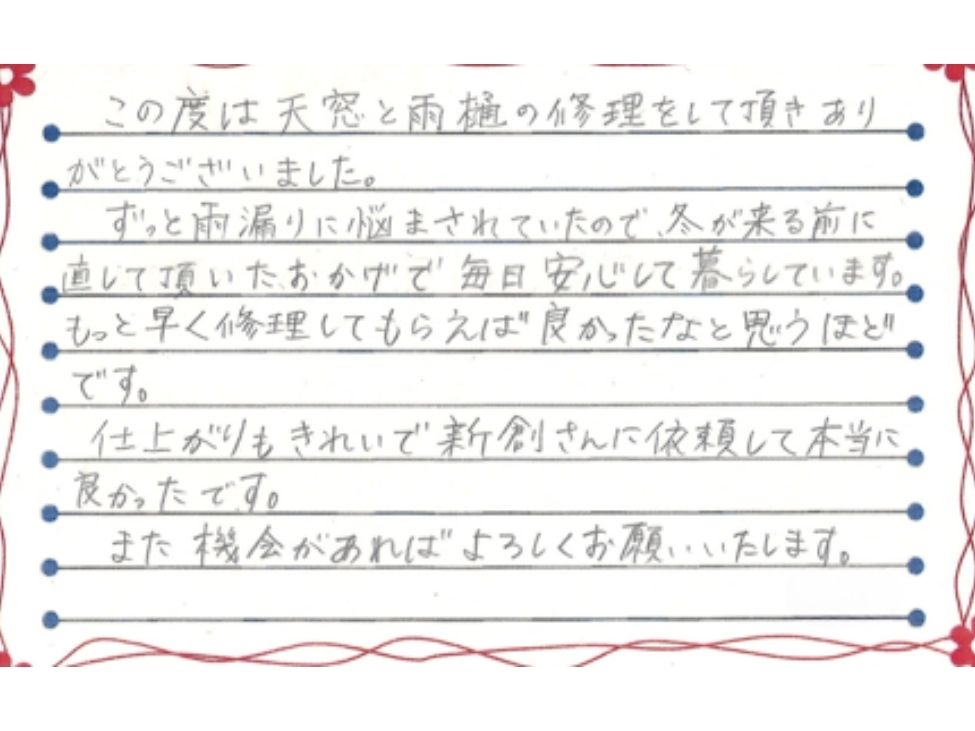 この度は天窓と雨樋の修理をして頂きあり
がとうございました。
ずっと雨漏りに悩まされていたので、冬が来る前に
直して頂いたおかげで毎日安心して暮らしています。
もっと早く修理してもらえば良かったなと思うほど
です。
仕上がりもきれいで新創さんに依頼して本当に
良かったです。
また機会があればよろしくお願いいたします。